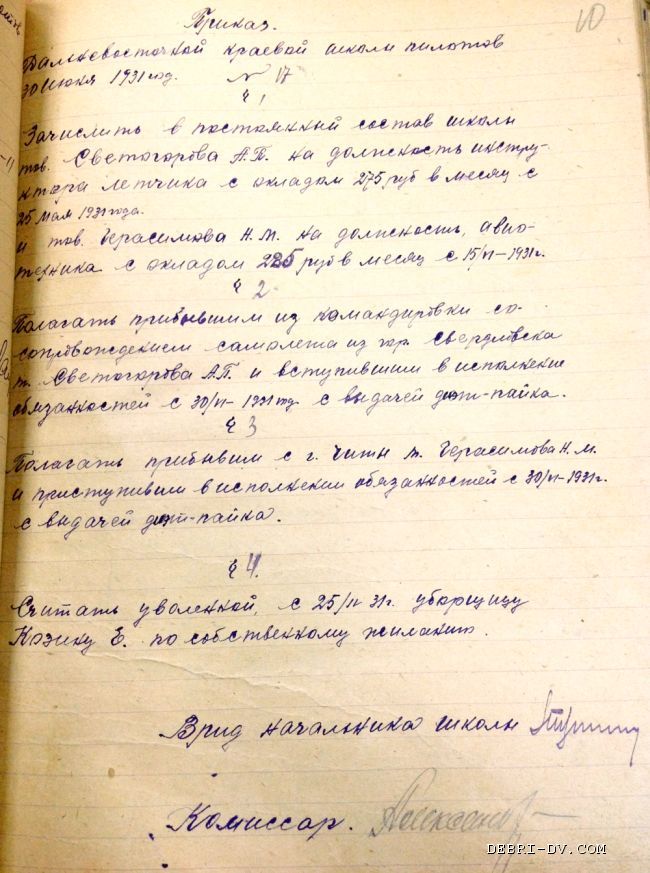 10
Приказ.
Дальневосточной краевой школы пилотов
30 июня 1931 год. № 17
§ 1
Зачислить в постоянный состав школы
тов. Светогорова А.П. на должность инстру-
ктора летчика с окладом 275 руб в месяц с
25 мая 1931 года.
и тов. Герасимова Н.М. на должность, авио-
техника с окладом 225 руб в месяц с 15/VI-1931г.
§ 2.
Полагать прибывшим из командировки со-
сопровождением самолета из гор. Свердловска
т. Светогорова А.П. и вступившим в исполнение
обязанностей с 30/VI-1931 год с выдачей лет-пайка.
§ 3
Полагать прибывшим с г. Читы т. Герасимова Н.М.
и приступившим в исполнении обязанностей с 30/VI-1931г.
с выдачей лет-пайка.
§ 4.
Считать уволенной, с 25/VI 31г. уборщицу
Козину Е. по собственному желанию.
Врид начальника школы
Комиссар.
DEBRI-DV.COM